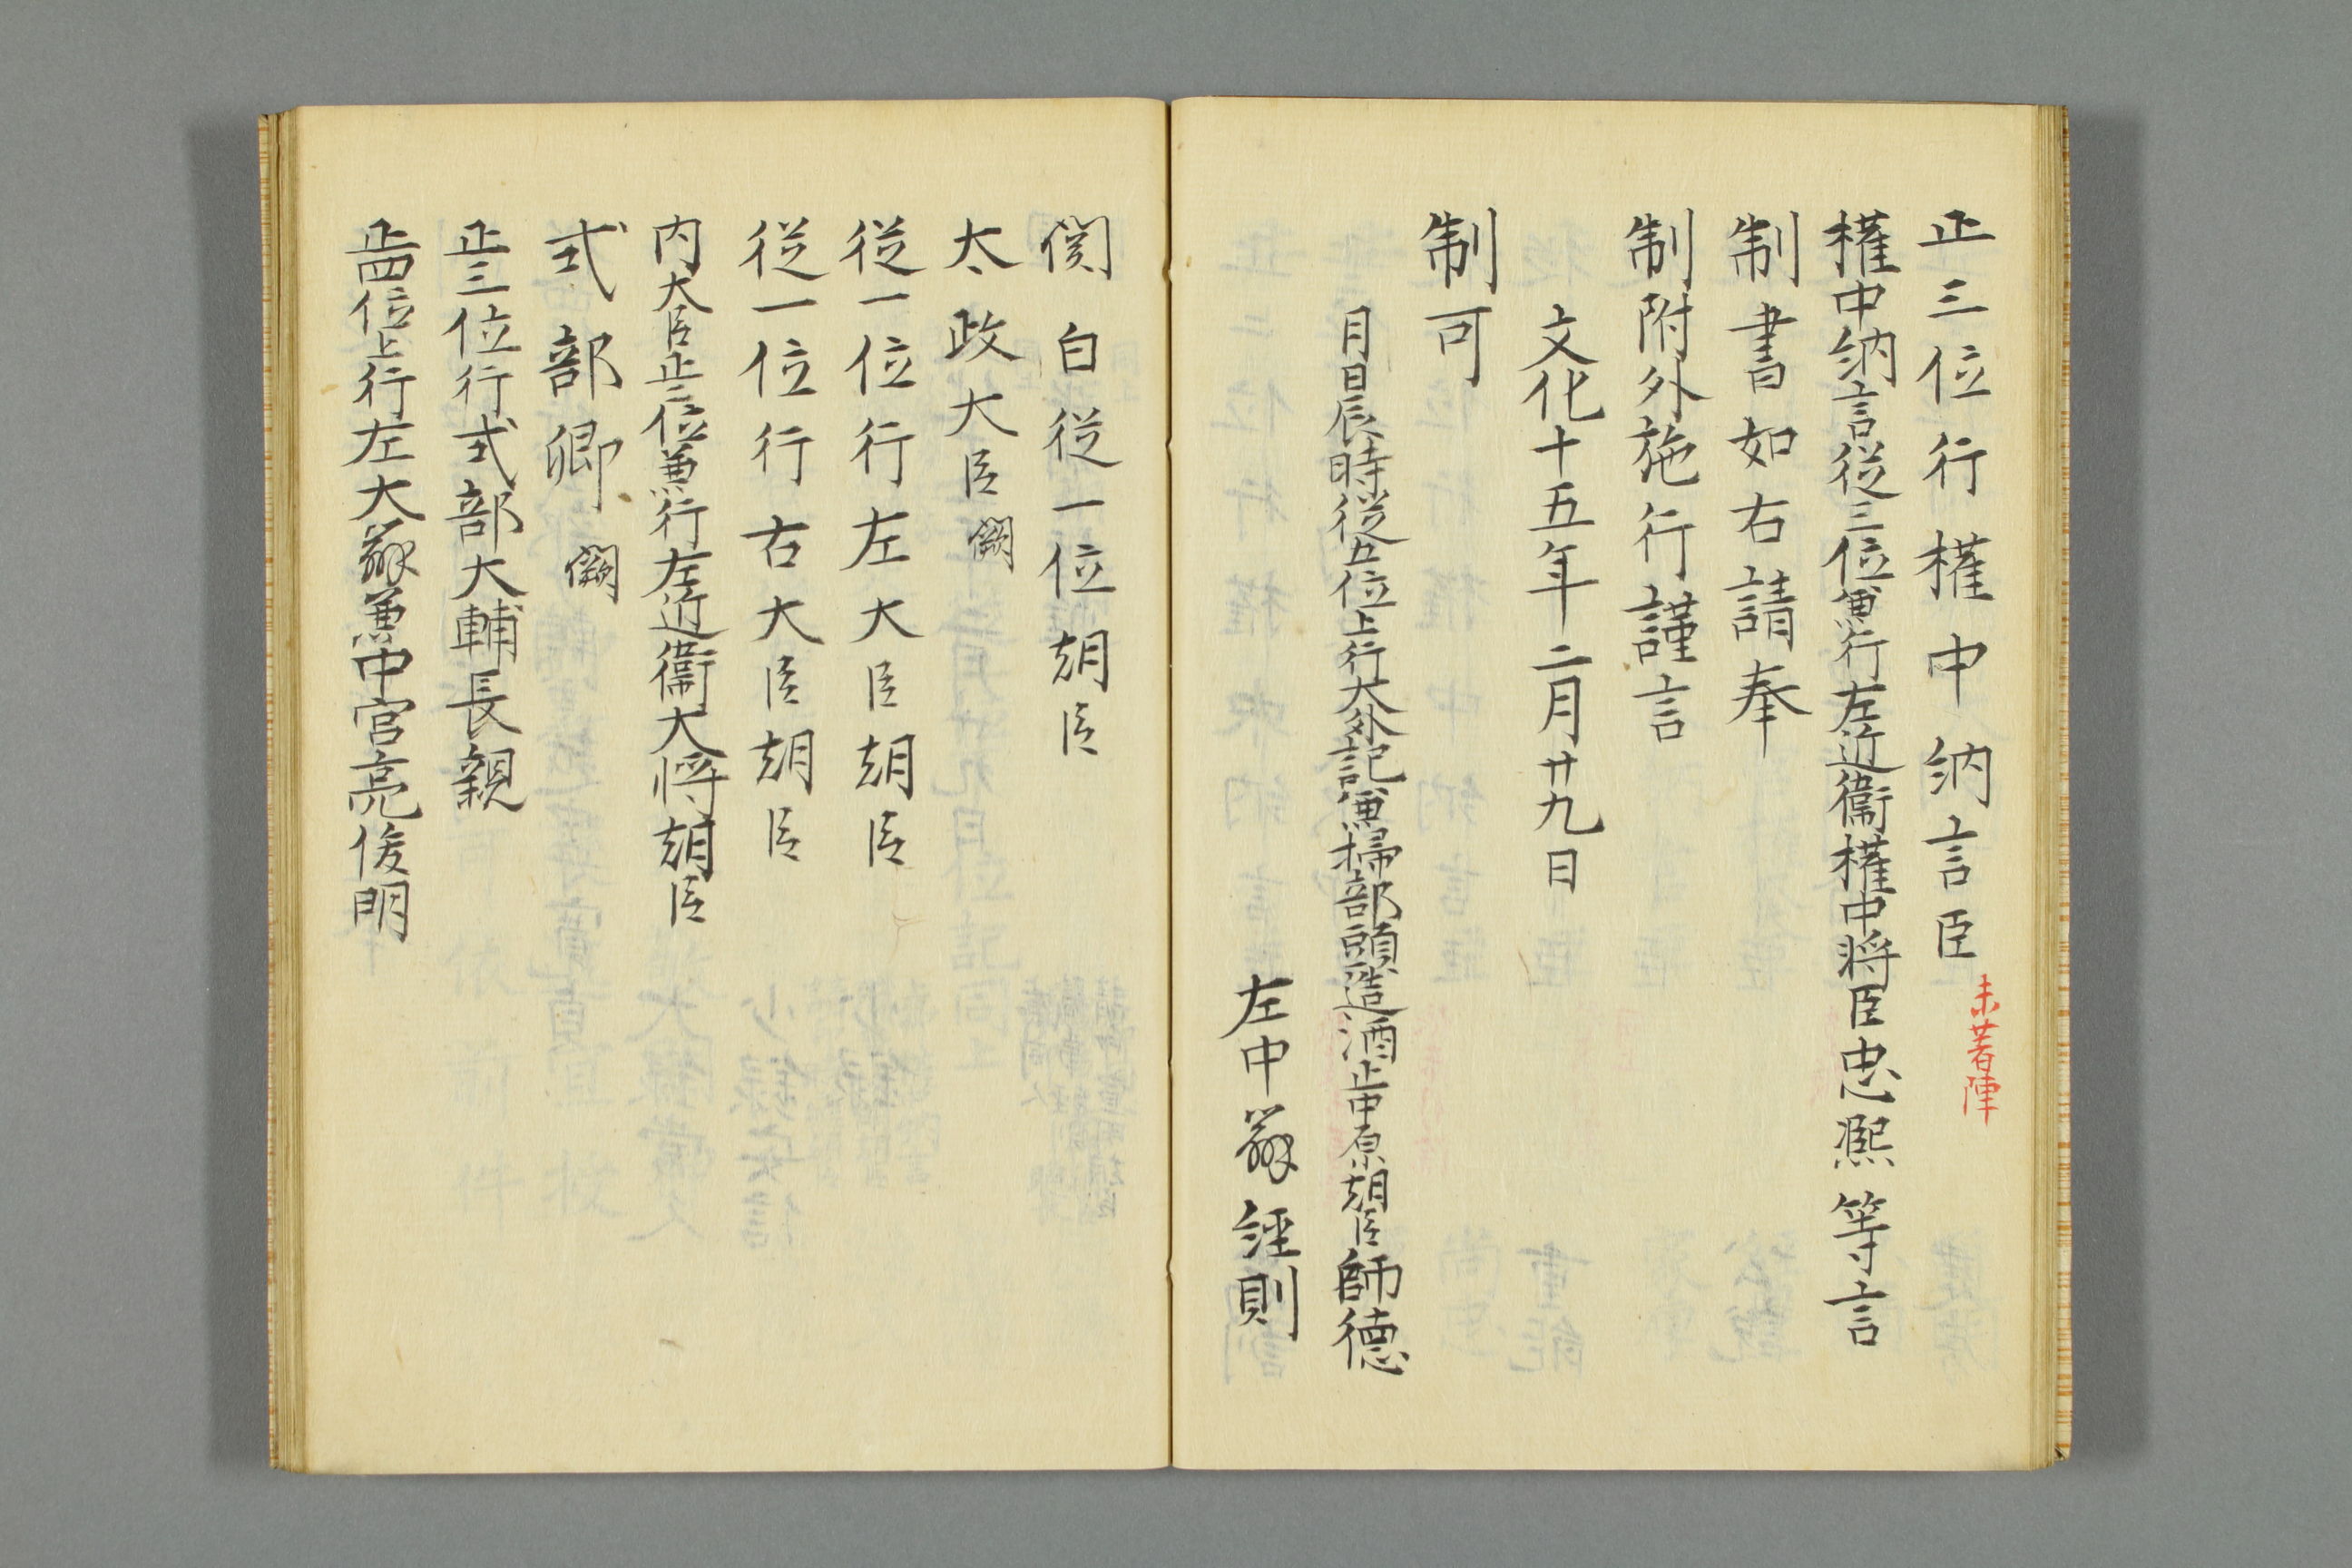 正三位行権中納言臣 未著陣
権中納言従三位兼行左近衞権中将臣忠熈等言
制書如右請奉
制附外施行謹言
文化十五年二月廿九日
制可
月日辰時従五位上行大外記兼掃部頭造酒正中原朝臣師德
左中辨経則
関白従一位朝臣
太政大臣闕
従一位行左大臣朝臣
従一位行右大臣朝臣
内大臣正二位兼行左近衞大将朝臣
式部卿闕
正三位行式部大輔長親
正四位上行左大辨兼中宮亮俊明